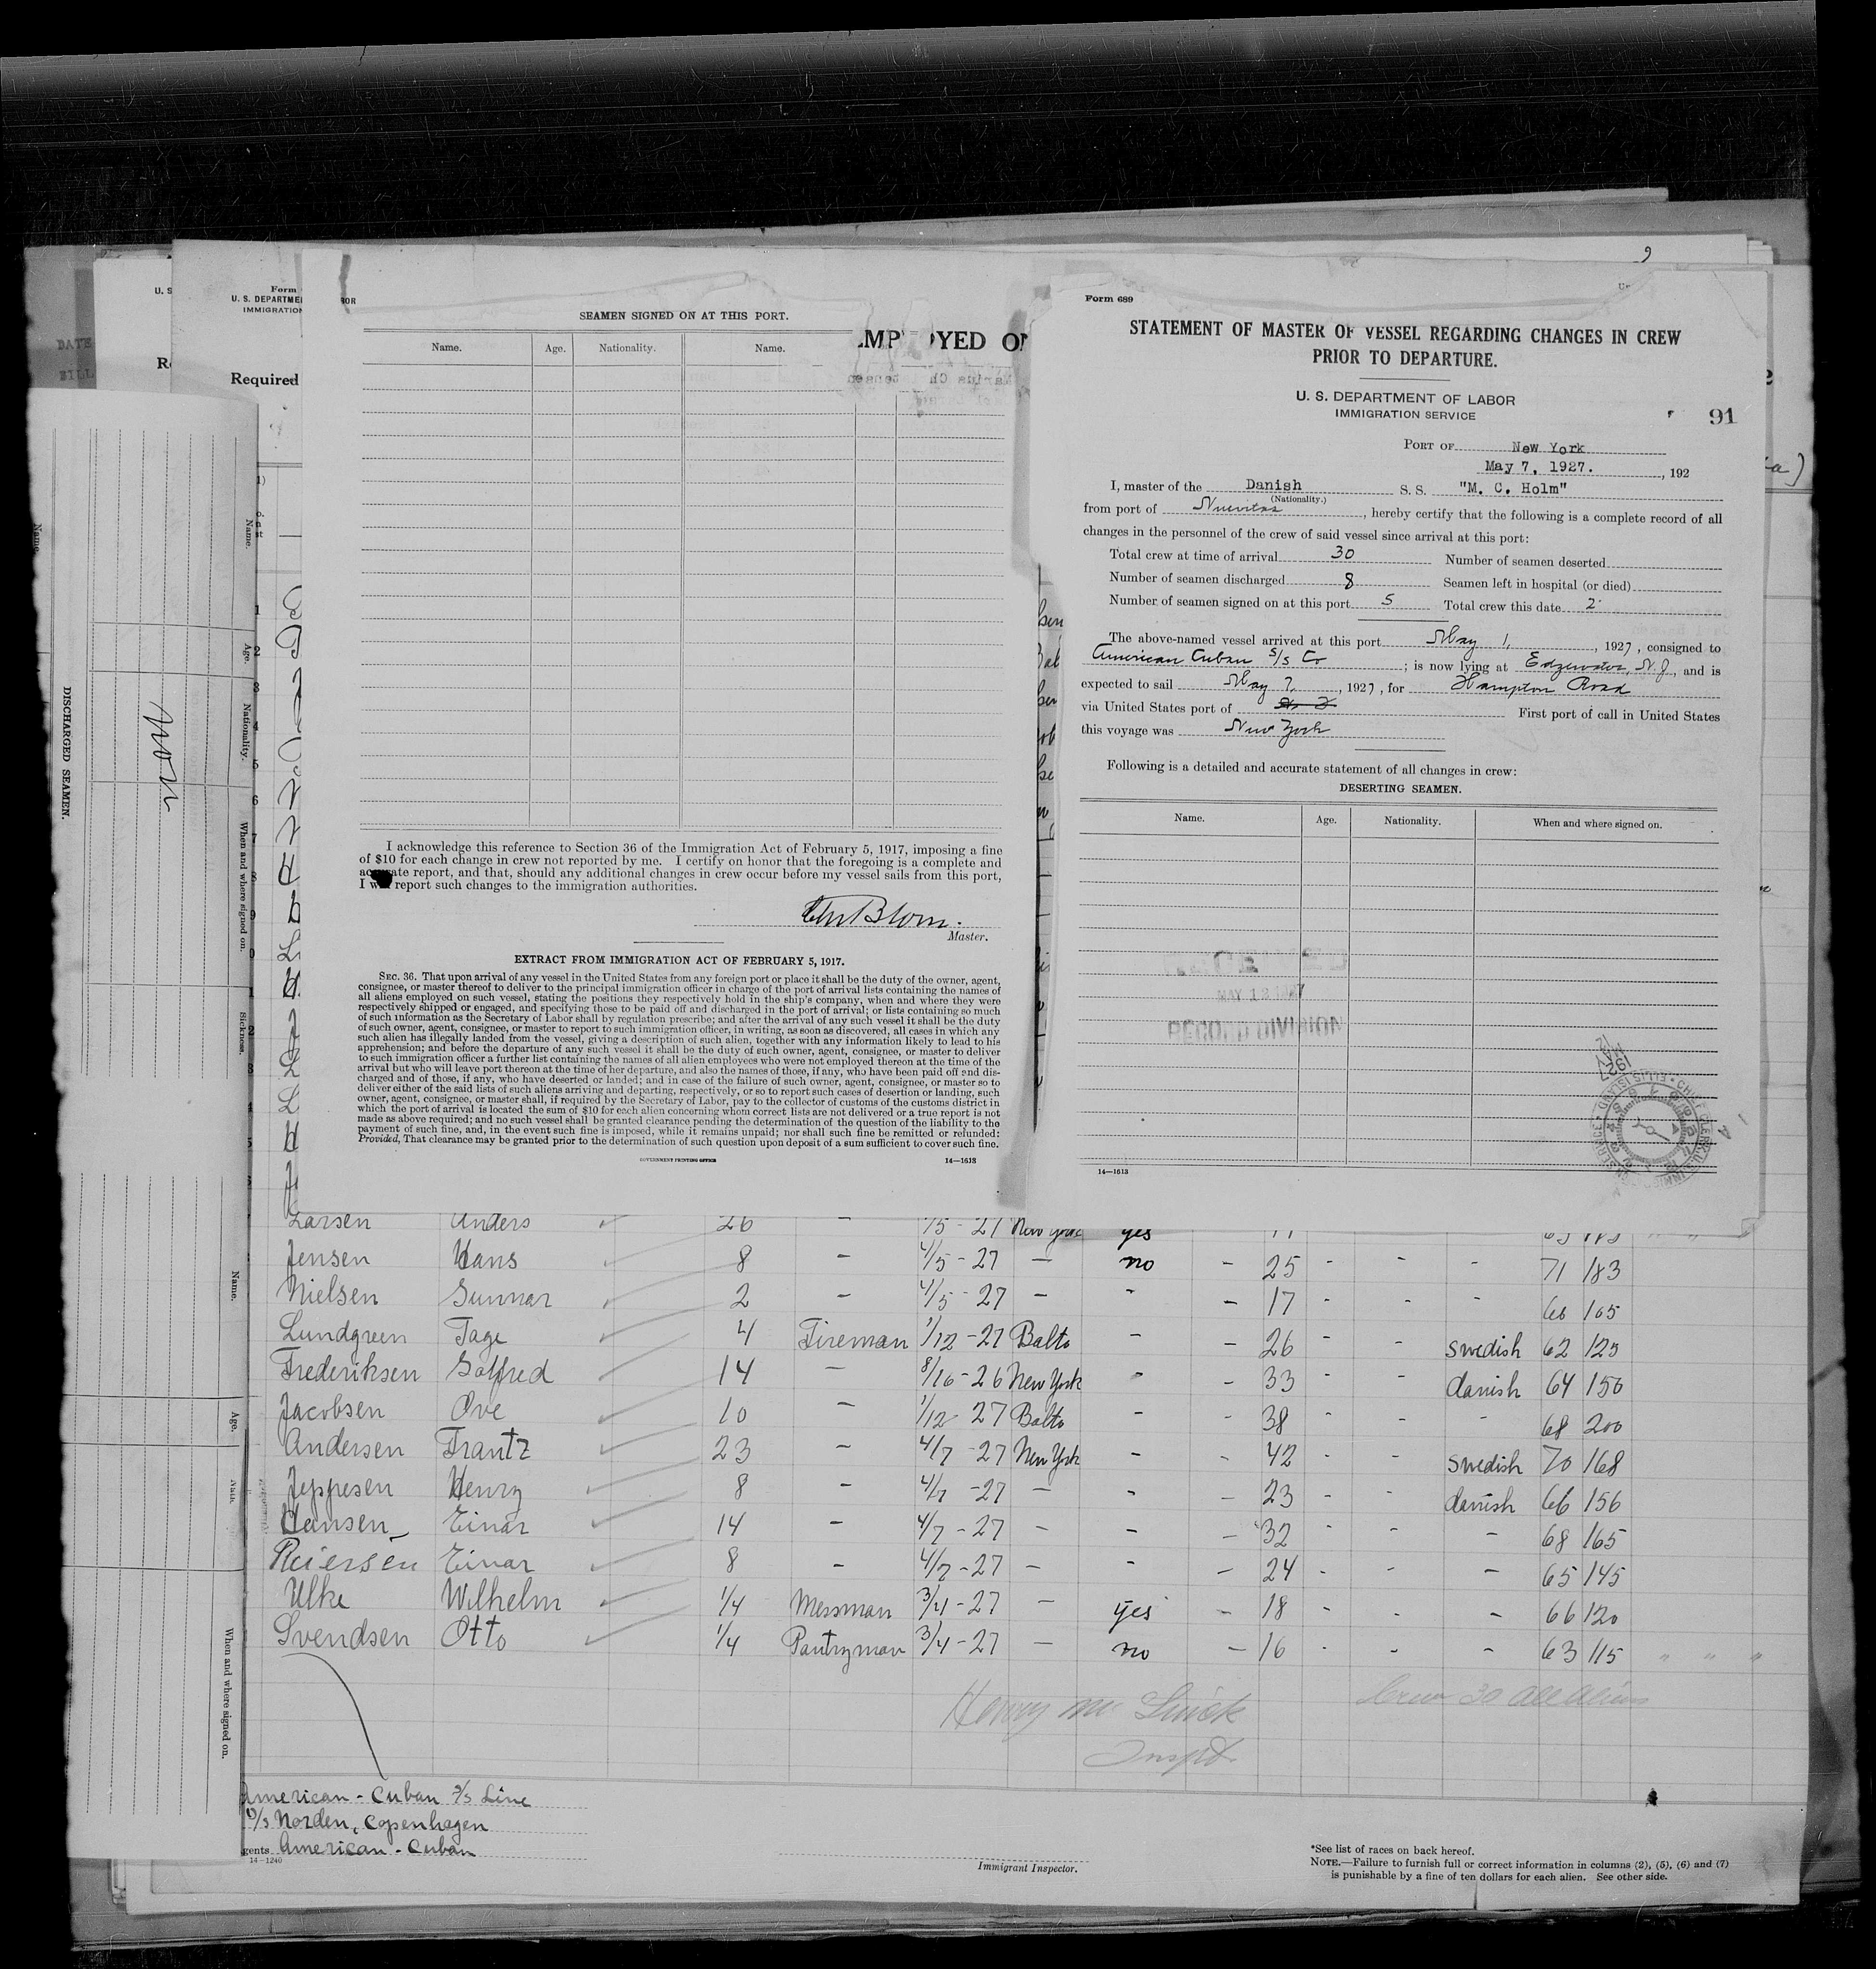 DATE
FILL
U. S
Form
U. S. DEPARTME
IMMIGRATION
Required
Name.
Age.
Nationality.
When and where signed on.
Sickness.
DISCHARGED SEAMEN.
Name.
Age.
When and where signed on.
BOR
SEAMEN SIGNED ON AT THIS PORT.
Name. Age. Nationality. Name.
YED ON
I acknowledge this reference to Section 36 of the Immigration Act of February 5, 1917, imposing a fine
of $10 for each change in crew not reported by me. I certify on honor that the foregoing is a complete and
accurate report, and that, should any additional changes in crew occur before my vessel sails from this port,
I will report such changes to the immigration authorities.
Chr Blom.
Master.
EXTRACT FROM IMMIGRATION ACT OF FEBRUARY 5, 1917.
SEC. 36. That upon arrival of any vessel in the United States from any foreign port or place it shall be the duty of the owner, agent,
consignee, or master thereof to deliver to the principal immigration officer in charge of the port of arrival lists containing the names of
all aliens employed on such vessel, stating the positions they respectively hold in the ship's company, when and where they were
respectively shipped or engaged, and specifying those to be paid off and discharged in the port of arrival; or lists containing so much
of such information as the Secretary of Labor shall by regulation prescribe; and after the arrival of any such vessel it shall be the duty
of such owner, agent, consignee, or master to report to such immigration officer, in writing, as soon as discovered, all cases in which any
such alien has illegally landed from the vessel, giving a description of such alien, together with any information likely to lead to his
apprehension; and before the departure of any such vessel it shall be the duty of such owner, agent, consignee, or master to deliver
to such immigration officer a further list containing the names of all alien employees who were not employed thereon at the time of the
arrival but who will leave port thereon at the time of her departure, and also the names of those, if any, who have been paid off and dis-
charged and of those, if any, who have deserted or landed; and in case of the failure of such owner, agent, consignee, or master so to
deliver either of the said lists of such aliens arriving and departing, respectively, or so to report such cases of desertion or landing, such
owner, agent, consignee, or master shall, if required by the Secretary of Labor, pay to the collector of customs of the customs district in
which the port of arrival is located the sum of $10 for each alien concerning whom correct lists are not delivered or a true report is not
made as above required; and no such vessel shall be granted clearance pending the determination of the question of the liability to the
payment of such fine, and, in the event such fine is imposed, while it remains unpaid; nor shall such fine be remitted or refunded:
Provided, That clearance may be granted prior to the determination of such question upon deposit of a sum sufficient to cover such fine.
GOVERNMENT PRINTING OFFICE 14—1613
Form 689
STATEMENT OF MASTER OF VESSEL REGARDING CHANGES IN CREW
PRIOR TO DEPARTURE.
U. S. DEPARTMENT OF LABOR
IMMIGRATION SERVICE
91
PORT OF New York
May 7, 1927. , 192
I, master of the Danish S. S. "M. C. Holm"
(Nationality.)
from port of Nuevitas , hereby certify that the following is a complete record of all
changes in the personnel of the crew of said vessel since arrival at this port:
Total crew at time of arrival 30 Number of seamen deserted
Number of seamen discharged 8 Seamen left in hospital (or died)
Number of seamen signed on at this port 5 Total crew this date 2
The above-named vessel arrived at this port May 1, , 1927, consigned to
American Cuban S/S Co ; is now lying at Edgewater, N.J., and is
expected to sail May 7, , 1927, for Hampton Road
via United States port of First port of call in United States
this voyage was New York
Following is a detailed and accurate statement of all changes in crew:
DESERTING SEAMEN.
Name. Age. Nationality. When and where signed on.
RECEIVED
MAY 12 1927
RECORD DIVISION
14—1613
Larsen Anders 26 - /5-27 New York yes
Jensen Hans 8 - 4/5-27 - no - 25 - - - 71 183
Nielsen Gunnar 2 - 4/5-27 - - - 17 - - - 66 165
Lundgreen Tage 4 Fireman 1/12-27 Balto - - 26 - - swedish 62 125
Frederiksen Gotfred 14 - 8/16-26 New York - - 33 - - danish 64 150
Jacobsen Ove 10 - 1/12-27 Balto - - 38 - - - 68 200
Andersen Frantz 23 - 4/7-27 New York - - 42 - - swedish 70 168
Jeppesen Henry 8 - 4/7-27 - - - 23 - - danish 66 156
Hansen Einar 14 - 4/7-27 - - - 32 - - - 68 165
Reiersen Einar 8 - 4/7-27 - - - 24 - - - 65 145
Ulke Wilhelm 1/4 Messman 3/4-27 - yes - 18 - - - 66 120
Svendsen Otto 1/4 Pantryman 3/4-27 - no - 16 - - - 63 115 " " "
Crew 30 all aliens
Inspt.
American-Cuban S/S Line
D/S Norden, Copenhagen
gents American-Cuban
14—1240
Immigrant Inspector.
*See list of races on back hereof.
NOTE.—Failure to furnish full or correct information in columns (2), (5), (6) and (7)
is punishable by a fine of ten dollars for each alien. See other side.